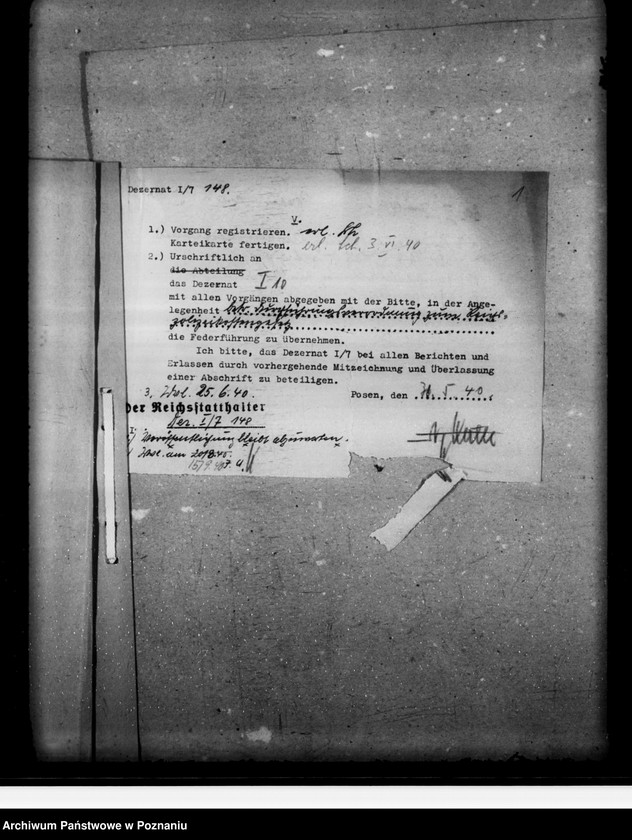 Dezernat I/7 148.
1
V.
1.) Vorgang registrieren. erl.
Karteikarte fertigen. erl. 3. VI. 40
2.) Urschriftlich an
die Abteilung
das Dezernat I 10
mit allen Vorgängen abgegeben mit der Bitte, in der Ange-
legenheit betr. Durchführungsverordnung zum
polizeikostengesetz
die Federführung zu übernehmen.
Ich bitte, das Dezernat I/7 bei allen Berichten und
Erlassen durch vorhergehende Mitzeichnung und Überlassung
einer Abschrift zu beteiligen.
3. Wvl. 25.6.40.
Posen, den 5. 40.
Der Reichsstatthalter
Dez. I/7 148
Veröffentlichung bleibt abzuwarten.
Wvl. am
Archiwum Państwowe w Poznaniu